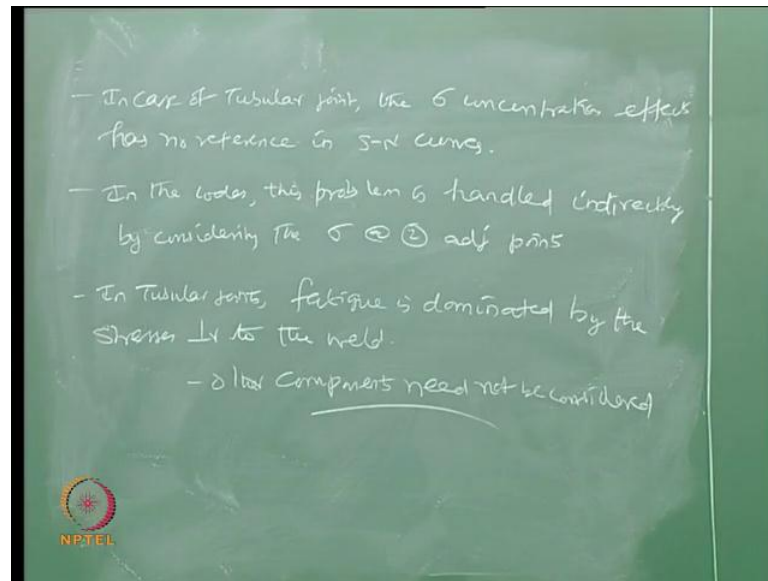 - In case of Tubular joint, the σ concentration effect
has no reference in S-N curves.
- In the codes, this problem is handled indirectly
by considering the σ @ ② adj points
- In Tubular joints, fatigue is dominated by the
stresses ⊥r to the weld.
- other components need not be considered
NPTEL